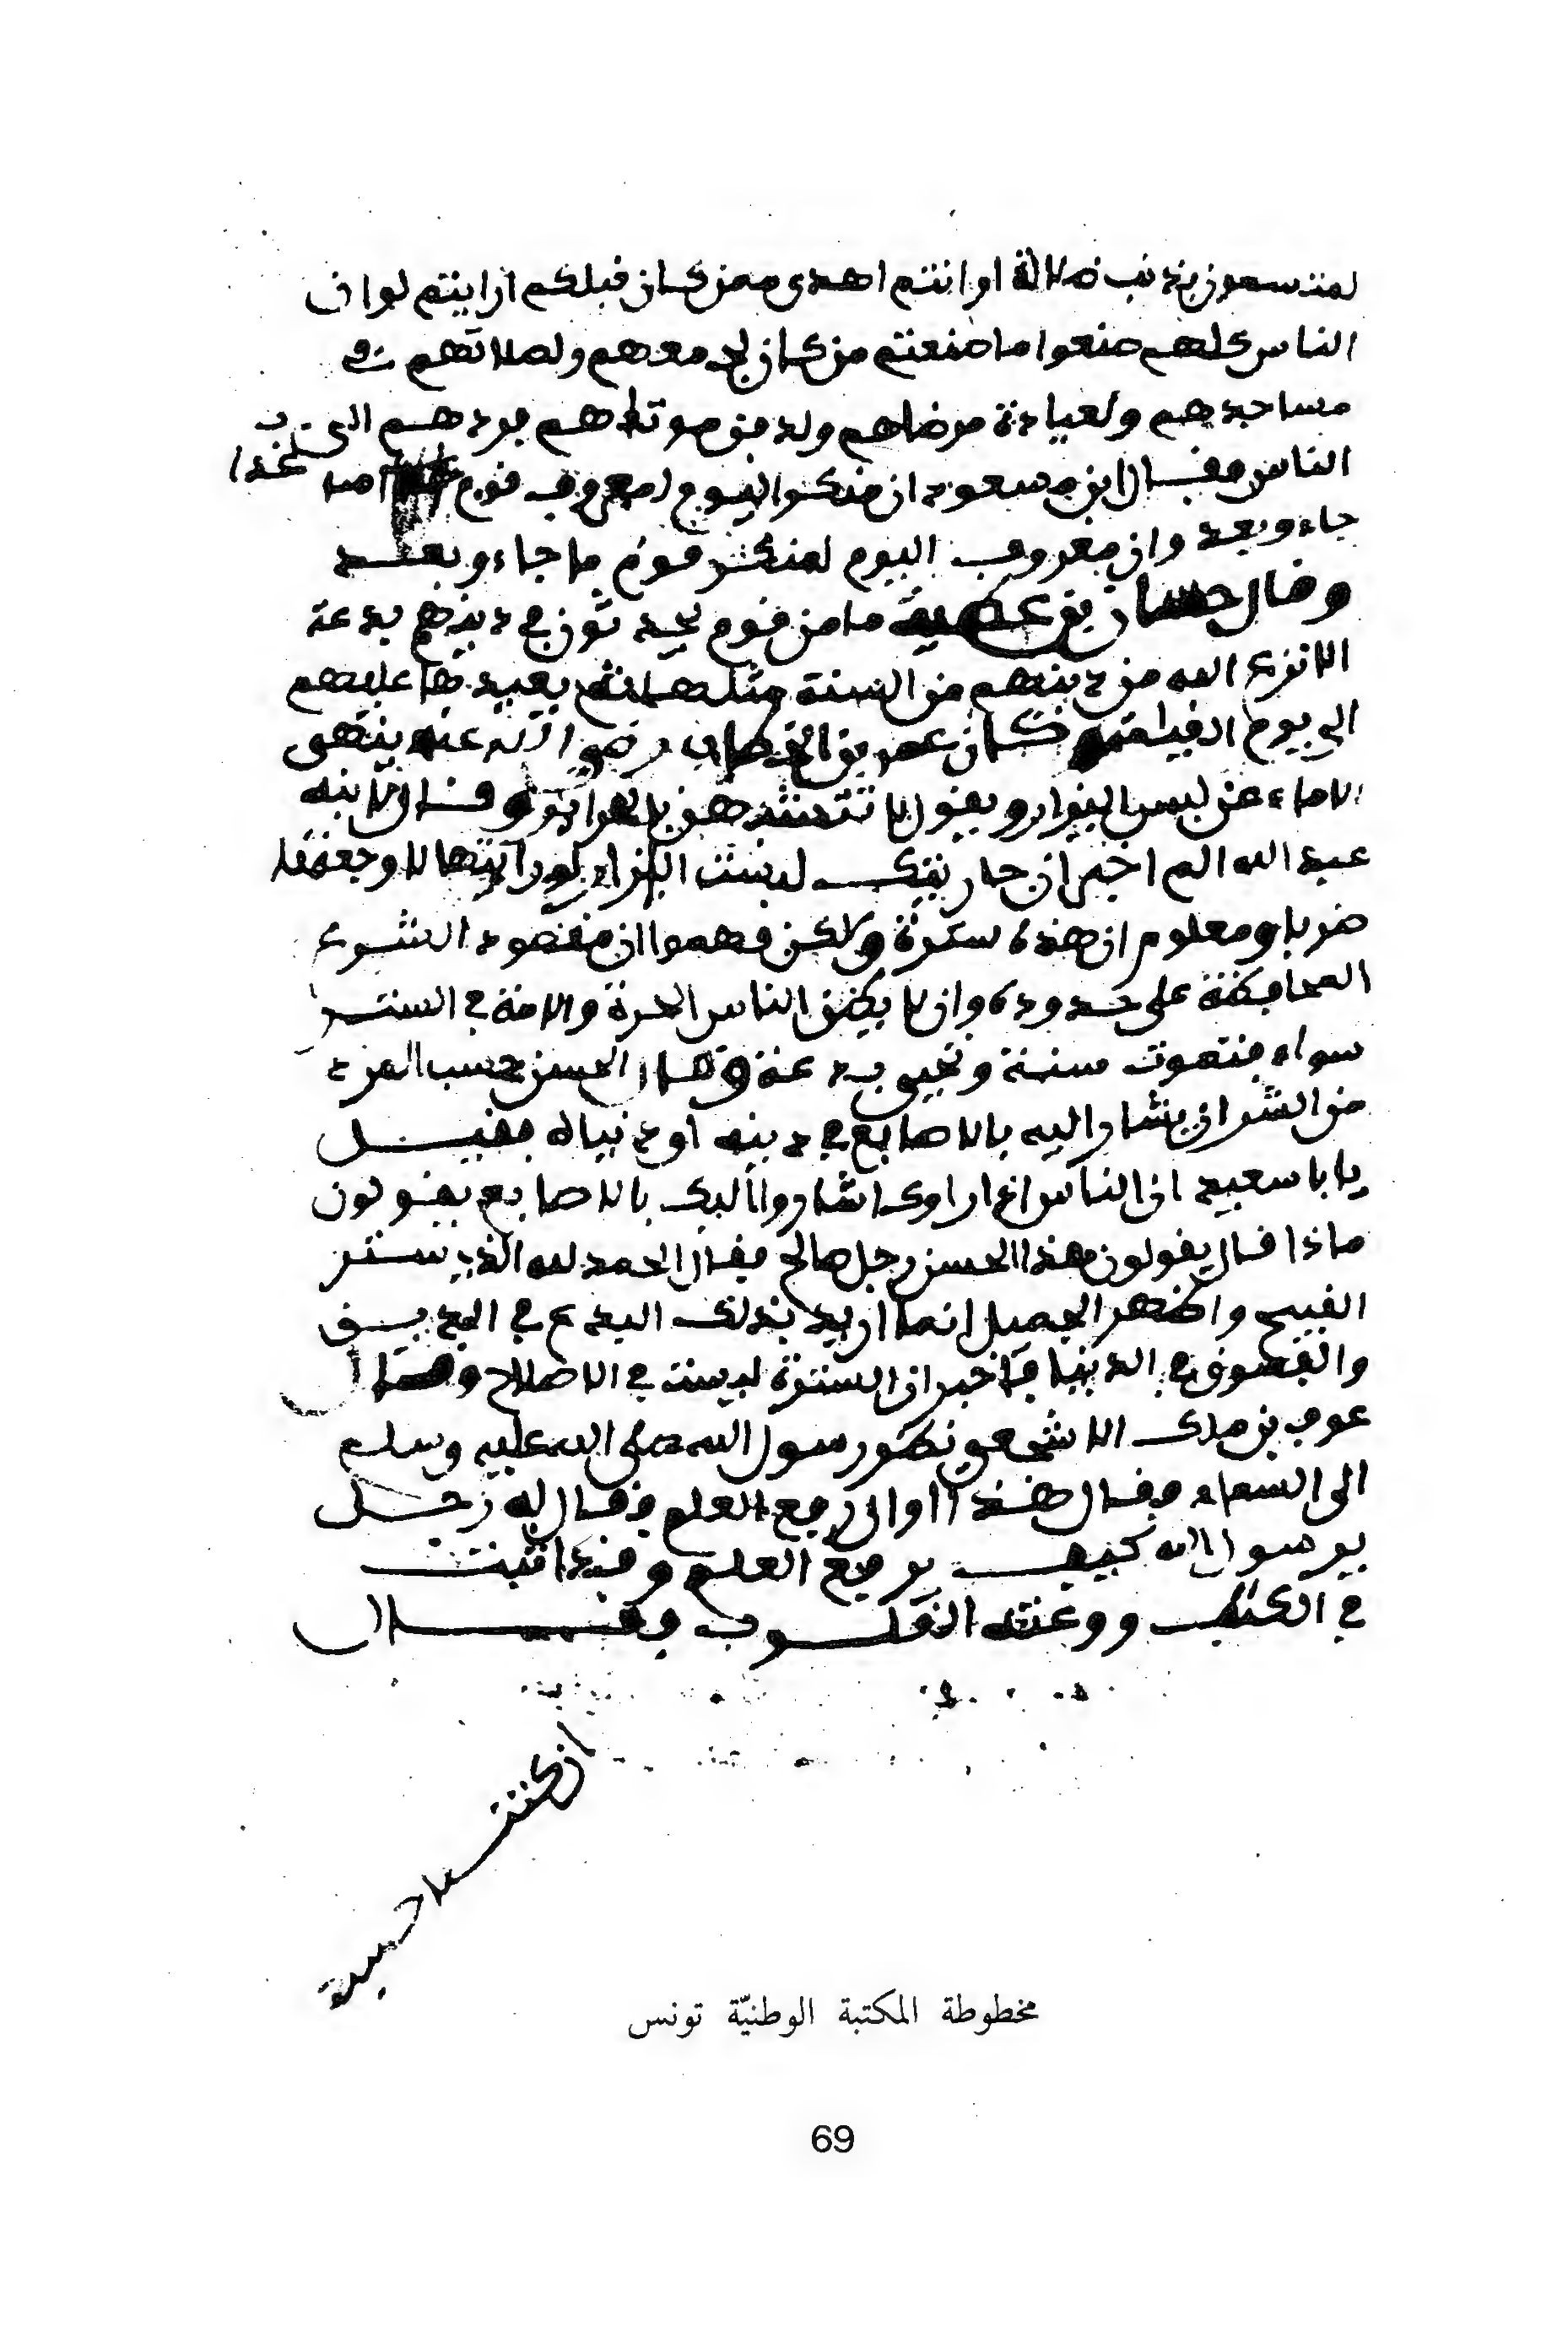 لمتمسكون بذنب ضلالة او انتم اهدى ممن كان قبلكم ارايتم لو ان
الناس كلهم صنعوا ما صنعتم من كان لجمعهم ولصلاتهم في
مساجدهم ولعيادة مرضاهم ولدفن موتاهم فردهم الى
الناس وقال ابن مسعود ان منكر اليوم لمعروف قوم ما
جاءو بعد وان معروف اليوم لمنكر قوم ما جاءو بعد
وقال حسان بن عطية ما من قوم يحدثون في دينهم بدعة
الا نزع الله من دينهم من السنة مثلها ثم يعيدها عليهم
الى يوم القيامة وكان عمر بن الخطاب رضي الله عنه ينهى
الاماء عن لبس اليزار ويقول لا تتشبهن بالحراير وقال لابنه
عبد الله الم اخبر ان جاريتك لبست اليزار لو رايتها لاوجعتها
ضربا ومعلوم ان هذه سترة ولكن فهموا ان مقصود الشرع
المحافظة على حدوده وان لا يظن الناس الحرة والامة في الستر
سواء فتموت سنة وتحيى بدعة وقال الحسن حسب المرء
من الشر ان يشار اليه بالاصابع في دينه او دنياه فقيل
يابا سعيد ان الناس اذا راوك اشاروا اليك بالاصابع يقولون
ماذا قال يقولون هذا الحسن رجل صالح فقال الحمد لله الذي ستر
القبيح واظهر الجميل انما اريد بذلك البدع في الدين
والفسوق في الدنيا فاخبر ان السترة ليست في الاصلاح وقال
عوف بن ملك الاشجعي نظر رسول الله صلى الله عليه وسلم
الى السماء فقال هذا اوان رفع العلم فقال له رجل
يرسول الله كيف يرفع العلم وقد اثبت
في الكتب ووعته القلوب فقال
ان كنت لاحسبك
مخطوطة المكتبة الوطنيّة تونس
69